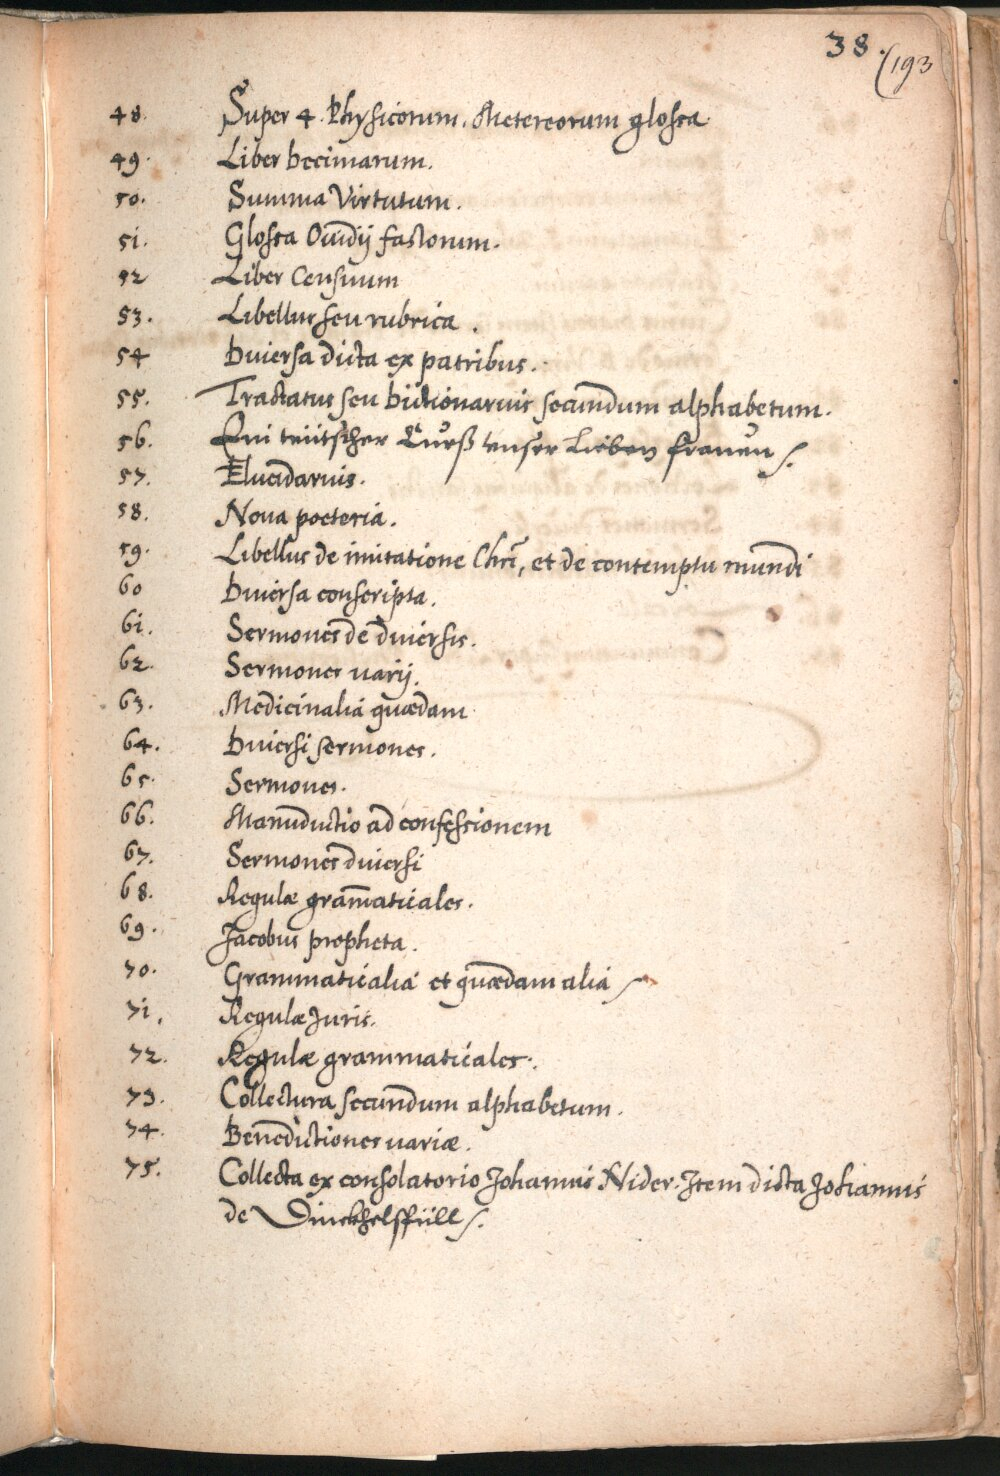 38.
(193
48. Super 4. Physicorum. Metereorum glossa
49. Liber Decimarum.
50. Summa Virtutum.
51. Glossa Ouidij fastorum.
52 Liber Censuum
53. Libellus seu rubrica.
54 Diuersa dicta ex patribus.
55. Tractatus seu Dictionarius secundum alphabetum.
56. Ein teütscher Curß unser Lieben frauen /.
57. Elucidarius.
58. Noua poeteria.
59. Libellus de imitatione Chrī, et de contemptu mundi
60 Diuersa conscripta.
61. Sermones de diuersis.
62. Sermones varij.
63. Medicinalia quædam
64. Diuersi sermones.
65. Sermones.
66. Manuductio ad confessionem
67. Sermones diuersi
68. Regulæ gram̄aticales.
69. Jacobus propheta.
70. Grammaticalia et quædam alia /
71. Regulæ Juris.
72. Regulæ grammaticales.
73. Collectura secundum alphabetum.
74. Benedictiones variæ.
75. Collecta ex consolatorio Johannis Nider. Item dicta Johannis
de Dinckhelsfüll /.